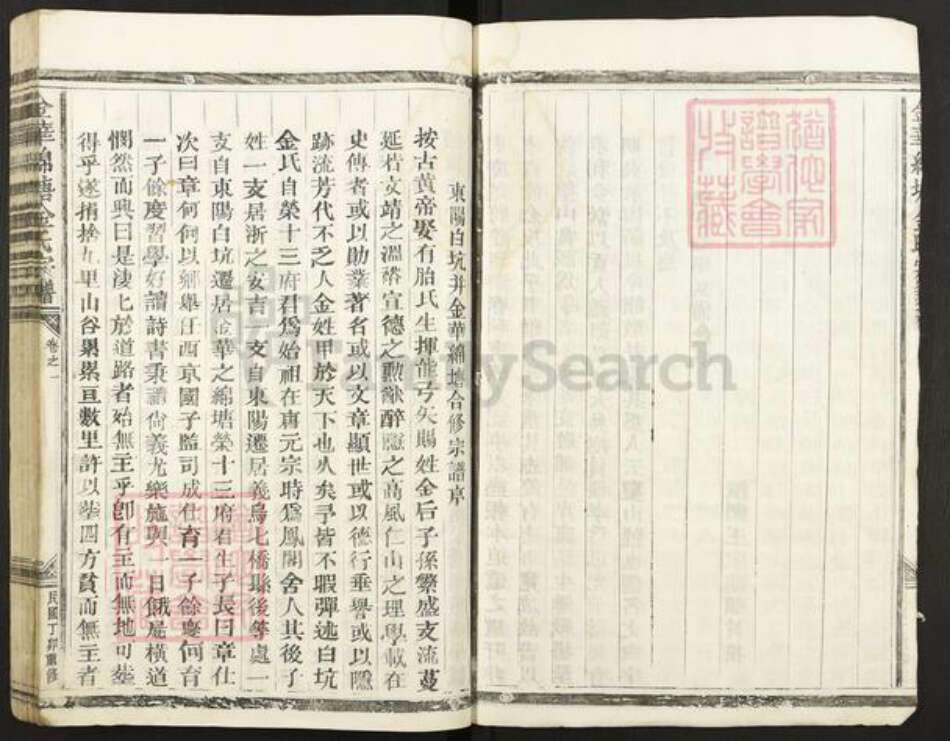 東陽白坑并金華綿塘合修宗譜序
按古黃帝娶有胎氏生揮能弓矢賜姓金后子孫繁盛支流蔓
延若文靖之溫蓉宣德之勲猷醉隱之高風仁山之理學載在
史傳者或以勛業著名或以文章顯世或以德行垂譽或以隱
跡流芳代不乏人金姓甲於天下也久矣予皆不暇彈述白坑
金氏自榮十三府君爲始祖在唐元宗時爲鳳閣舍人其後子
姓一支居浙之安吉一支自東陽遷居義烏七橋縣後等處一
支自東陽白坑遷居金華之綿塘榮十三府君生子長曰章仕
次曰章何何以鄉舉任西京國子監司成仕育一子餘慶何育
一子餘慶習學好讀詩書秉禮尙義尤樂施與一日餓莩橫道
憫然而興曰是淒匕於道路者始無主乎卽有主而無地可葬
得乎遂捐捨九里山谷纍纍亘數里許以葬四方貧而無主者
金華綿塘金氏宗譜
卷之一
民國丁卯重修
猶他家
譜學會
收藏
FamilySearch